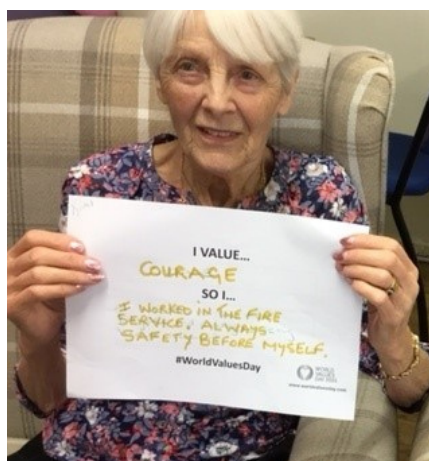 I VALUE...
COURAGE
SO I...
I WORKED IN THE FIRE
SERVICE. ALWAYS
SAFETY BEFORE MYSELF.
#WorldValuesDay
WORLD
VALUES
www.worldvaluesday.com